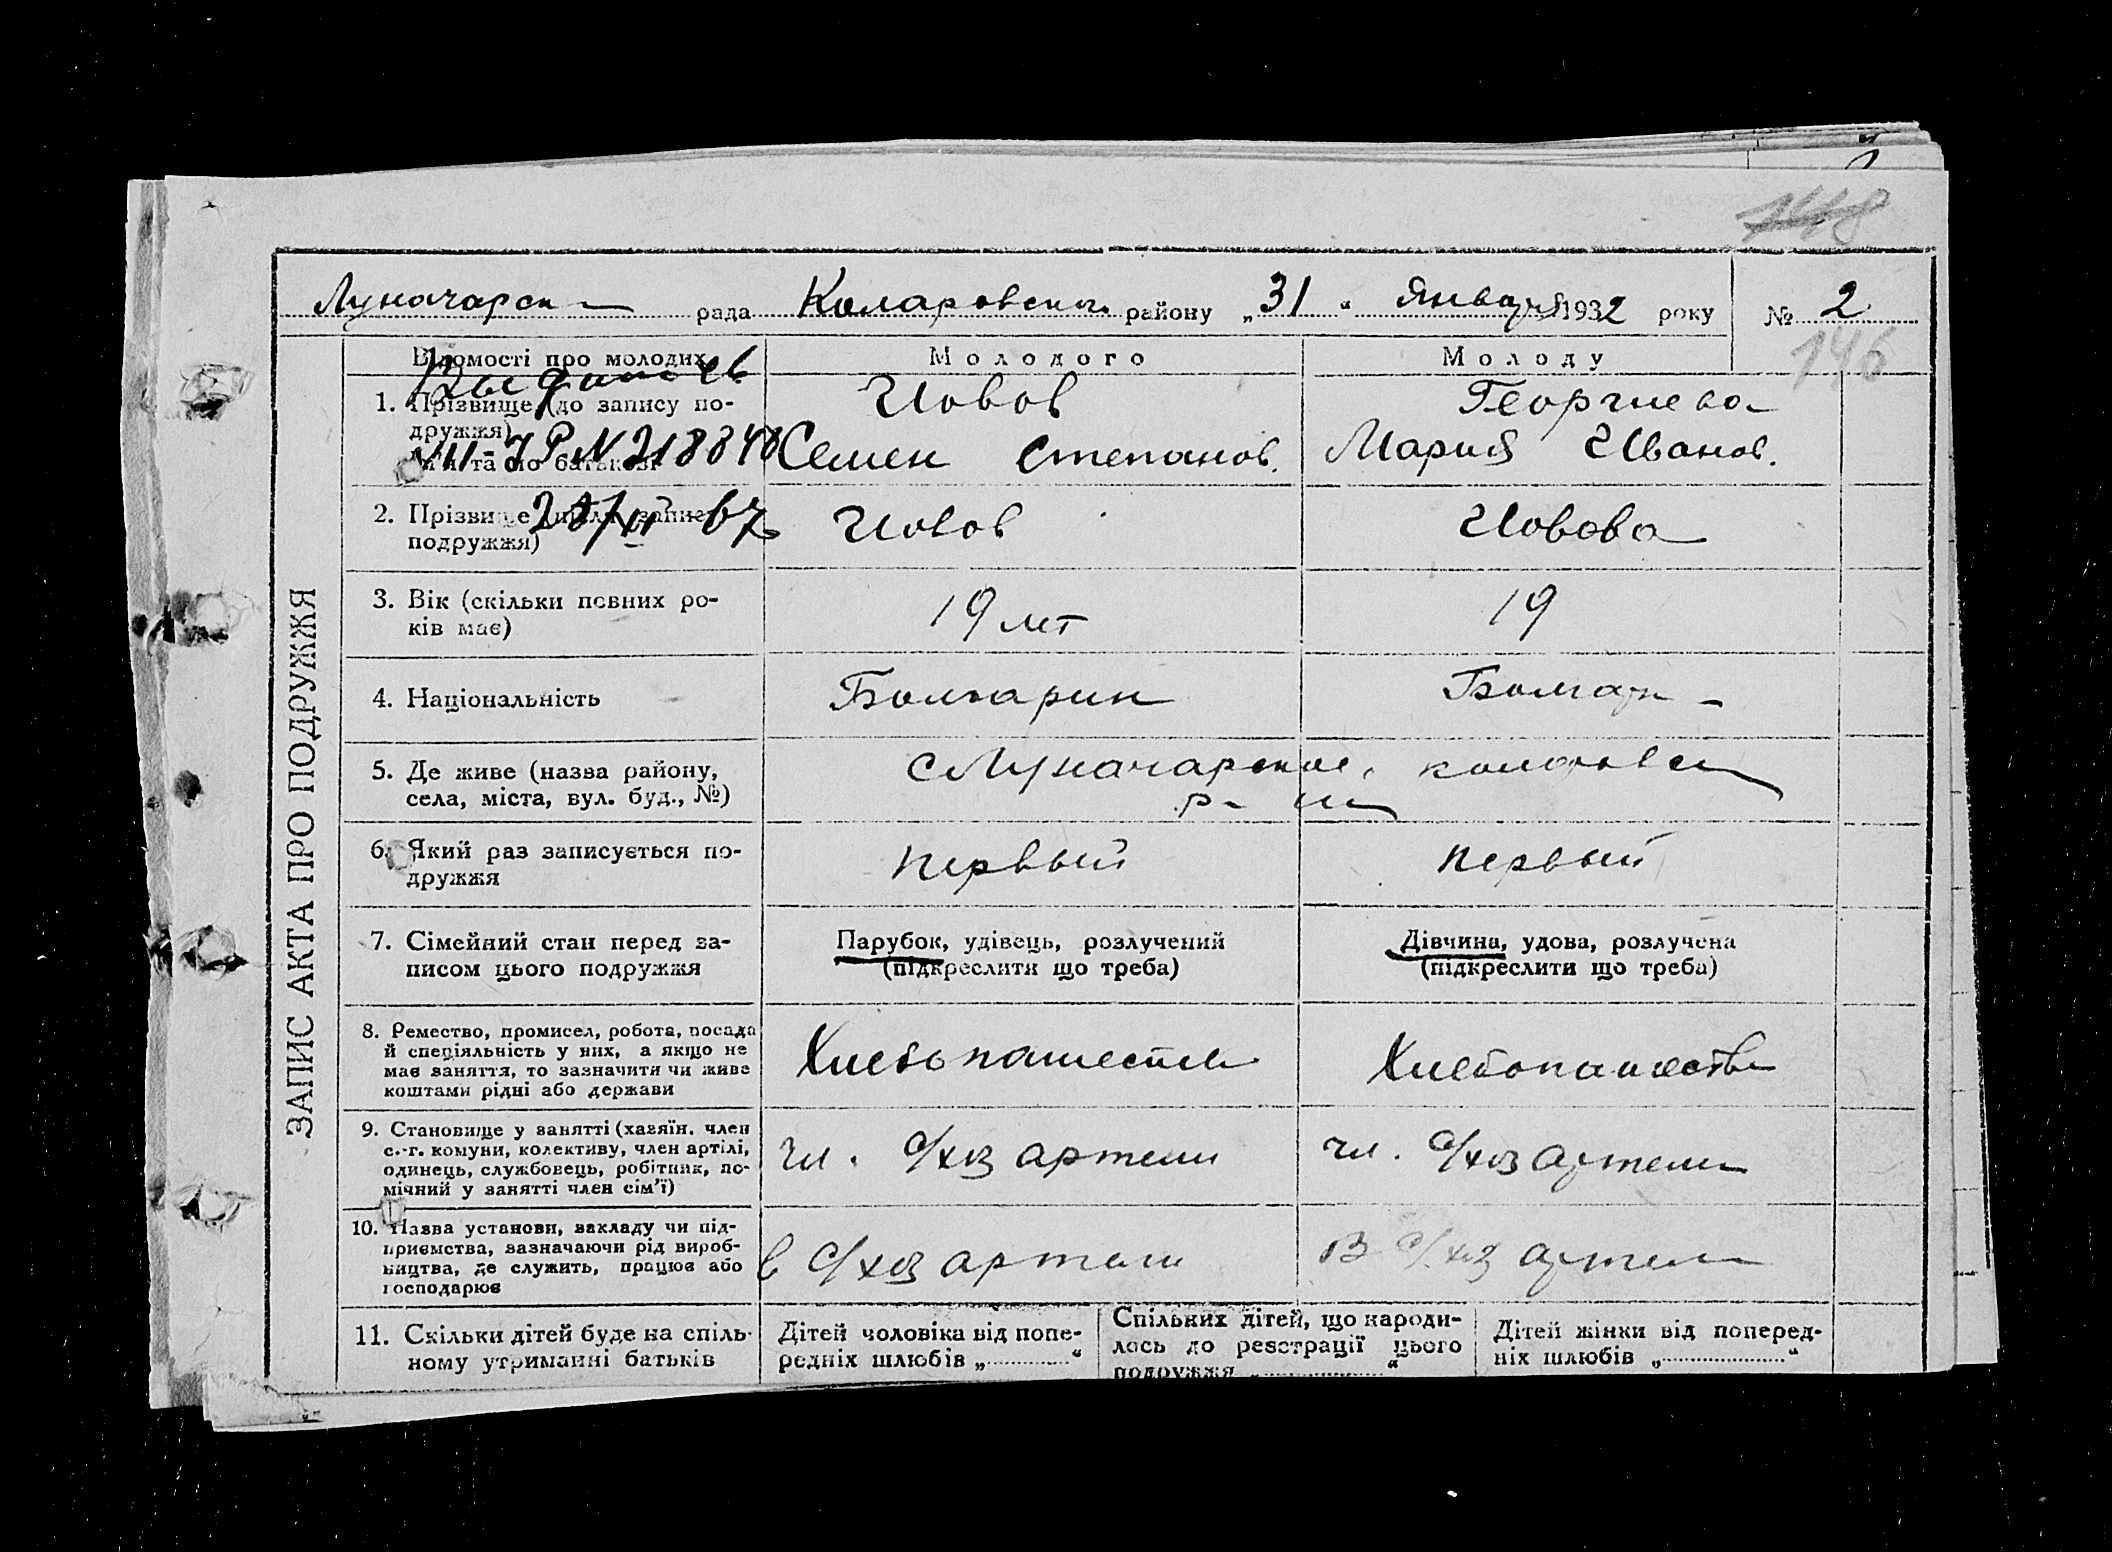 148
Луначарск рада Коларовск. району „31“ Января 1932 року № 2
146
ЗАПИС АКТА ПРО ПОДРУЖЖЯ
Відомості про молодих
Молодого
Молоду
1. Прізвище (до запису по-
дружжя)
та по батькові
Иовов
Семен Степанов.
Георгиева
Мария Иванов.
VII-ЖР N 218848
2. Прізвище (після запису
подружжя)
Иовов
Иовова
3. Вік (скільки повних ро-
ків має)
19 лет
19
4. Національність
Болгарин
Болгар-
5. Де живе (назва району,
села, міста, вул. буд., №)
с Луначарское, Коларовск
р-на
6. Який раз записується по-
дружжя
первый
первый
7. Сімейний стан перед за-
писом цього подружжя
Парубок, удівець, розлучений
(підкреслити що треба)
Дівчина, удова, розлучена
(підкреслити що треба)
8. Ремество, промисел, робота, посада
й спеціяльність у них, а якщо не
має заняття, то зазначити чи живе
коштами рідні або держави
Хлебопашество
Хлебопашество
9. Становище у занятті (хазяїн, член
с.-г. комуни, колективу, член артілі,
одинець, службовець, робітник, по-
мічний у занятті член сім'ї)
чл. с/хоз артели
чл. с/хоз артели
10. Назва установи, закладу чи під-
приємства, зазначаючи рід вироб-
ництва, де служить, працює або
господарює
в с/хоз артели
в с/хоз артели
11. Скільки дітей буде на спіль-
ному утриманні батьків
Дітей чоловіка від попе-
редніх шлюбів „............“
Спільних дітей, що народи-
лось до реєстрації цього
подружжя „............“
Дітей жінки від поперед-
ніх шлюбів „............“